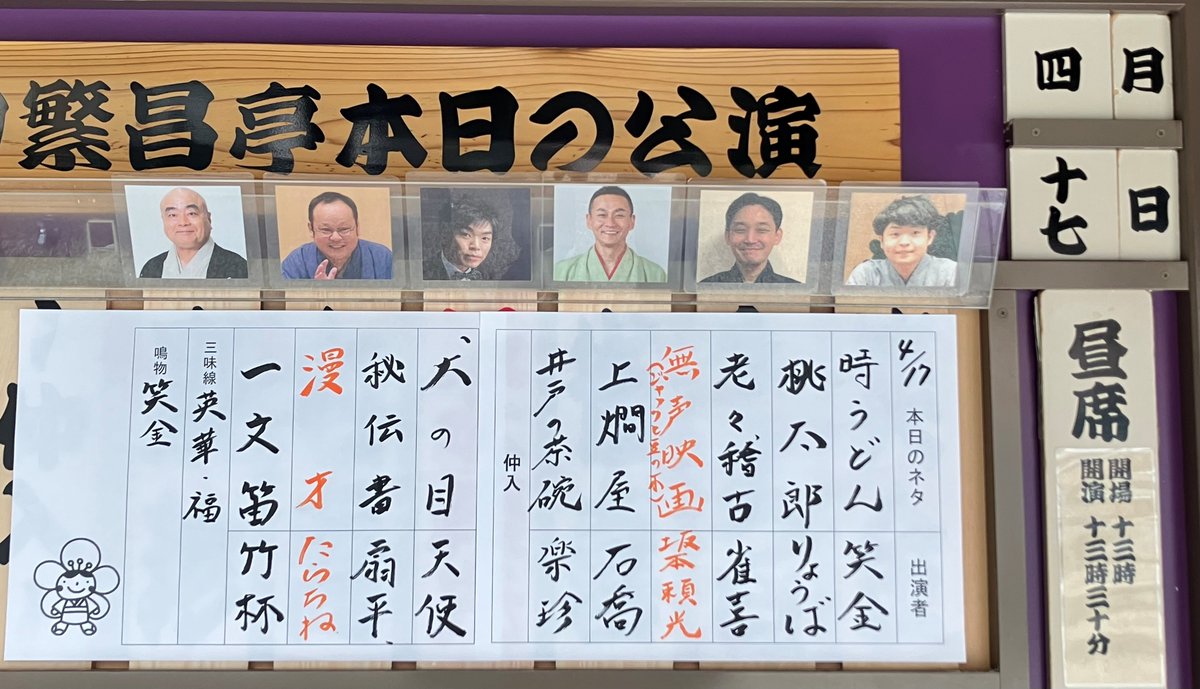 繁昌亭本日の公演
四月
十七日
昼席
開場 十三時
開演 十三時三十分
4/17 本日のネタ 出演者
時うどん 笑金
桃太郎 りょうば
老々稽古 雀喜
無声映画 坂本頼光
(ジャックと豆の木)
上燗屋 石喬
井戸の茶碗 楽珍
仲入
犬の目 天使
秘伝書 扇平
漫才 たらちね
一文笛 竹林
三味線 英華・福
鳴物 笑金